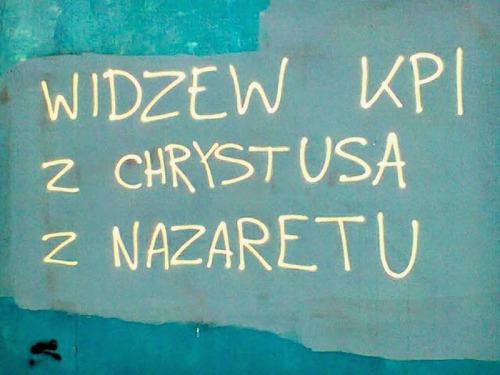 WIDZEW KPI
Z CHRYSTUSA
Z NAZARETU